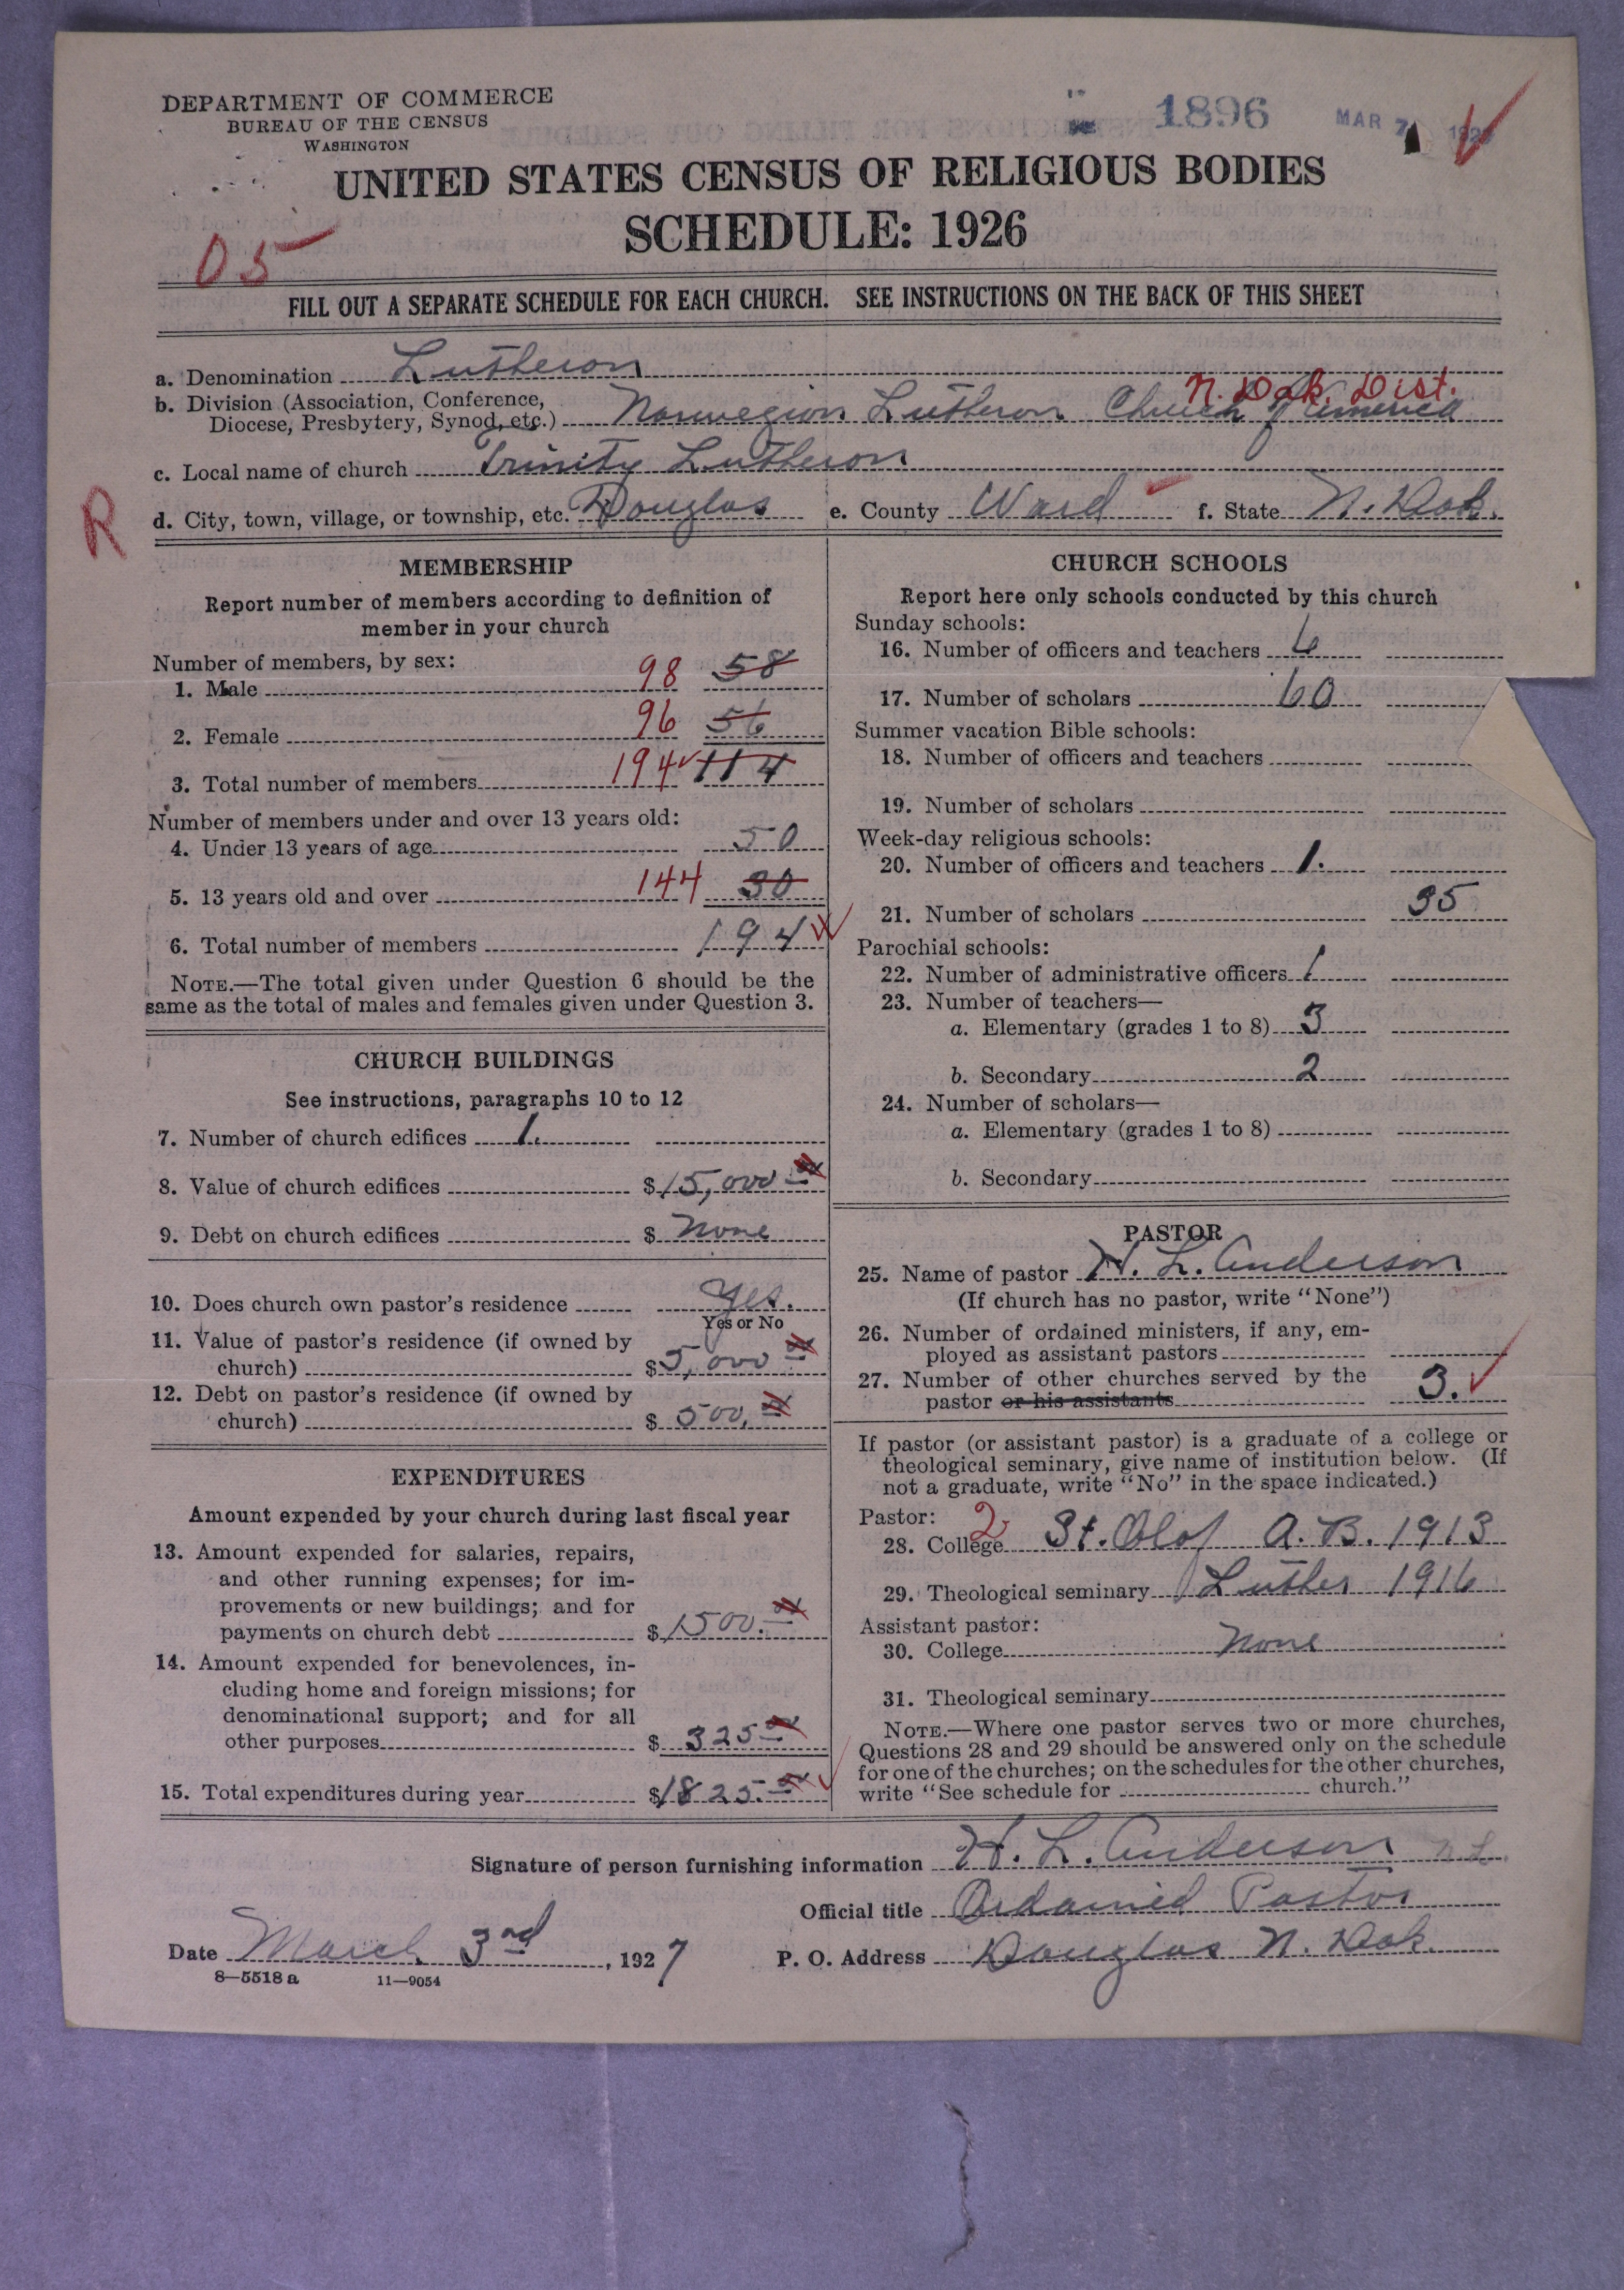 DEPARTMENT OF COMMERCE
BUREAU OF THE CENSUS
WASHINGTON
1896
MAR 7
UNITED STATES CENSUS OF RELIGIOUS BODIES
SCHEDULE: 1926
05
FILL OUT A SEPARATE SCHEDULE FOR EACH CHURCH. SEE INSTRUCTIONS ON THE BACK OF THIS SHEET
a. Denomination Lutheran
N. Dak. Dist.
b. Division (Association, Conference,
Diocese, Presbytery, Synod, etc.) Norwegian Lutheran Church of America
c. Local name of church Trinity Lutheran
R
d. City, town, village, or township, etc. Douglas e. County Ward f. State N. Dak.
MEMBERSHIP
Report number of members according to definition of
member in your church
Number of members, by sex:
1. Male 98 58
2. Female 96 56
3. Total number of members 194 114
Number of members under and over 13 years old:
4. Under 13 years of age 50
5. 13 years old and over 144 30
6. Total number of members 194
NOTE.—The total given under Question 6 should be the
same as the total of males and females given under Question 3.
CHURCH BUILDINGS
See instructions, paragraphs 10 to 12
7. Number of church edifices 1.
8. Value of church edifices $15,000
9. Debt on church edifices $ None
10. Does church own pastor's residence Yes.
Yes or No
11. Value of pastor's residence (if owned by
church) $5,000
12. Debt on pastor's residence (if owned by
church) $ 500.
EXPENDITURES
Amount expended by your church during last fiscal year
13. Amount expended for salaries, repairs,
and other running expenses; for im-
provements or new buildings; and for
payments on church debt $1500.
14. Amount expended for benevolences, in-
cluding home and foreign missions; for
denominational support; and for all
other purposes $ 325
15. Total expenditures during year $1825.
CHURCH SCHOOLS
Report here only schools conducted by this church
Sunday schools:
16. Number of officers and teachers 6
17. Number of scholars 60
Summer vacation Bible schools:
18. Number of officers and teachers
19. Number of scholars
Week-day religious schools:
20. Number of officers and teachers 1.
21. Number of scholars 35
Parochial schools:
22. Number of administrative officers 1
23. Number of teachers—
a. Elementary (grades 1 to 8) 3
b. Secondary 2
24. Number of scholars—
a. Elementary (grades 1 to 8)
b. Secondary
PASTOR
25. Name of pastor H. L. Anderson
(If church has no pastor, write "None")
26. Number of ordained ministers, if any, em-
ployed as assistant pastors
27. Number of other churches served by the
pastor or his assistants 3.
If pastor (or assistant pastor) is a graduate of a college or
theological seminary, give name of institution below. (If
not a graduate, write "No" in the space indicated.)
Pastor:
28. College 2 St. Olof A.B. 1913
29. Theological seminary Luther 1916
Assistant pastor:
30. College None
31. Theological seminary
NOTE.—Where one pastor serves two or more churches,
Questions 28 and 29 should be answered only on the schedule
for one of the churches; on the schedules for the other churches,
write "See schedule for church."
Signature of person furnishing information H. L. Anderson
Official title Ordained Pastor
Date March 3rd, 1927 P. O. Address Douglas N. Dak.
8—5518 a 11—9054